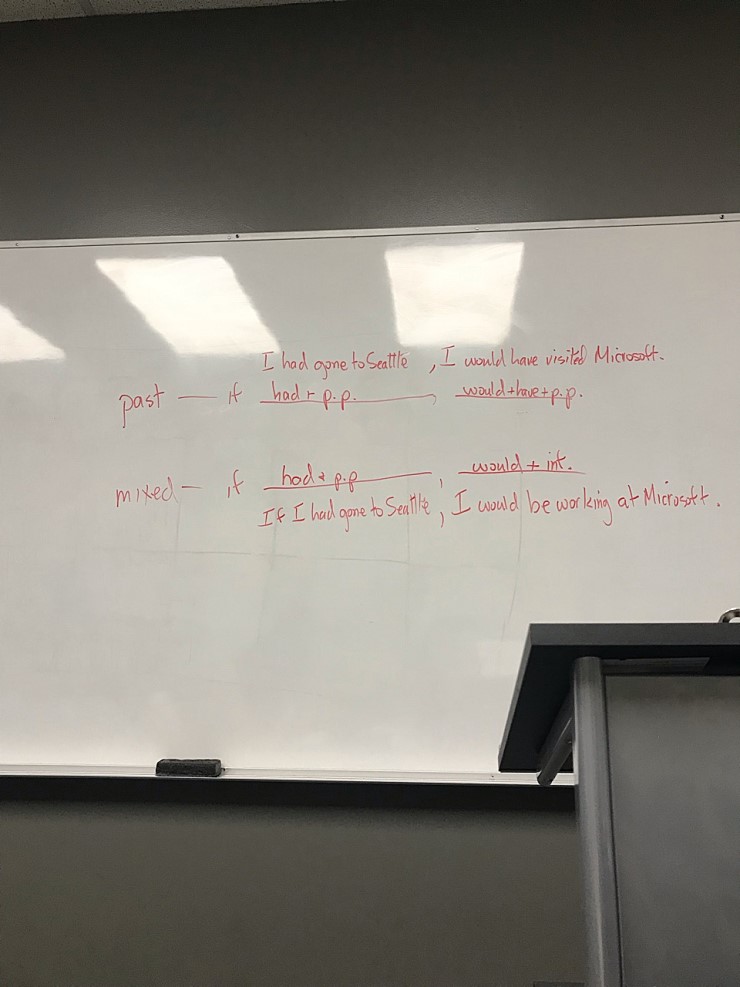 I had gone to Seattle , I would have visited Microsoft.
past — if had + p.p. , would+have+p.p.
mixed — if had + p.p , would + inf.
If I had gone to Seattle, I would be working at Microsoft.